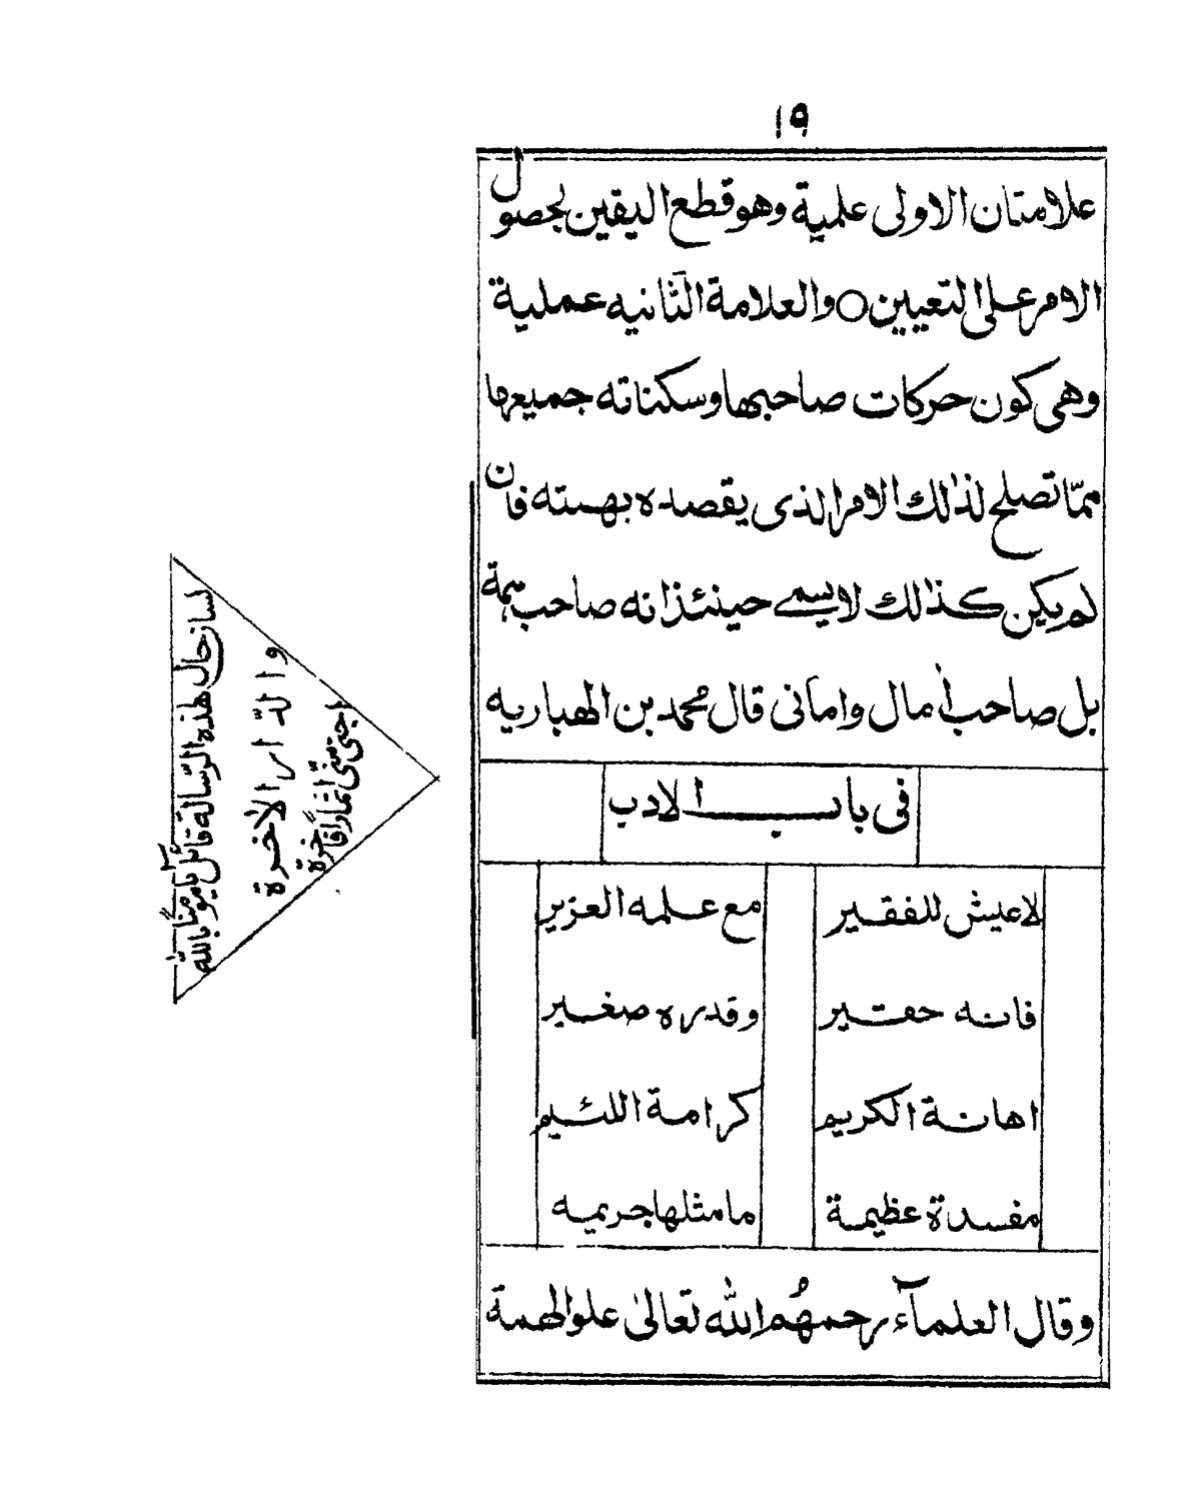 ١٩
علامتان الاولى علمية وهو قطع اليقين بحصول
الامر على التعيين ○ والعلامة الثانيه عملية
وهى كون حركات صاحبها وسكناته جميعها
ممّا تصلح لذٰلك الامر الذى يقصده بهمته فان
لم يكن كذٰلك لا يسمى حينئذ انه صاحب همة
بل صاحب اٰمال وامانى قال محمد بن الهباريه
فى باب الادب
لاعيش للفقير مع علمه العزيز
فانه حقير وقدره صغير
اهانة الكريم كرامة اللئيم
مفسدة عظيمة ما مثلها جريميه
وقال العلمآء رحمهُم الله تعالىٰ علو الهمة
لسان حال هٰذه الرّسالة قائل يا مؤمنًا بالله
والدّار الاٰخرة
اجتنى منّى ثمارًا فاخرة